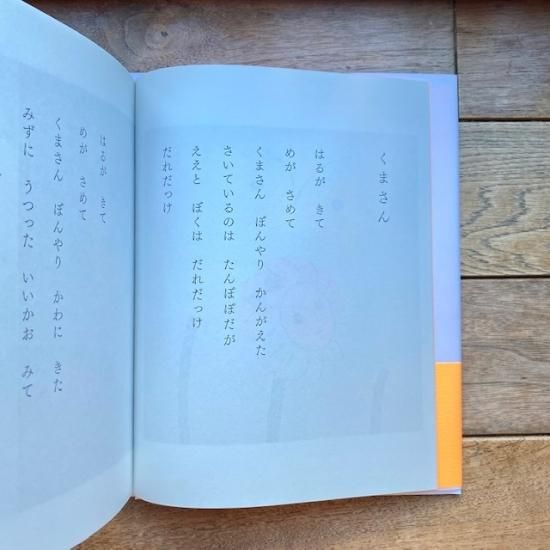 くまさん
はるが きて
めが さめて
くまさん ぼんやり かんがえた
さいているのは たんぽぽだが
ええと ぼくは だれだっけ
だれだっけ
はるが きて
めが さめて
くまさん ぼんやり かわに きた
みずに うつった いいかお みて